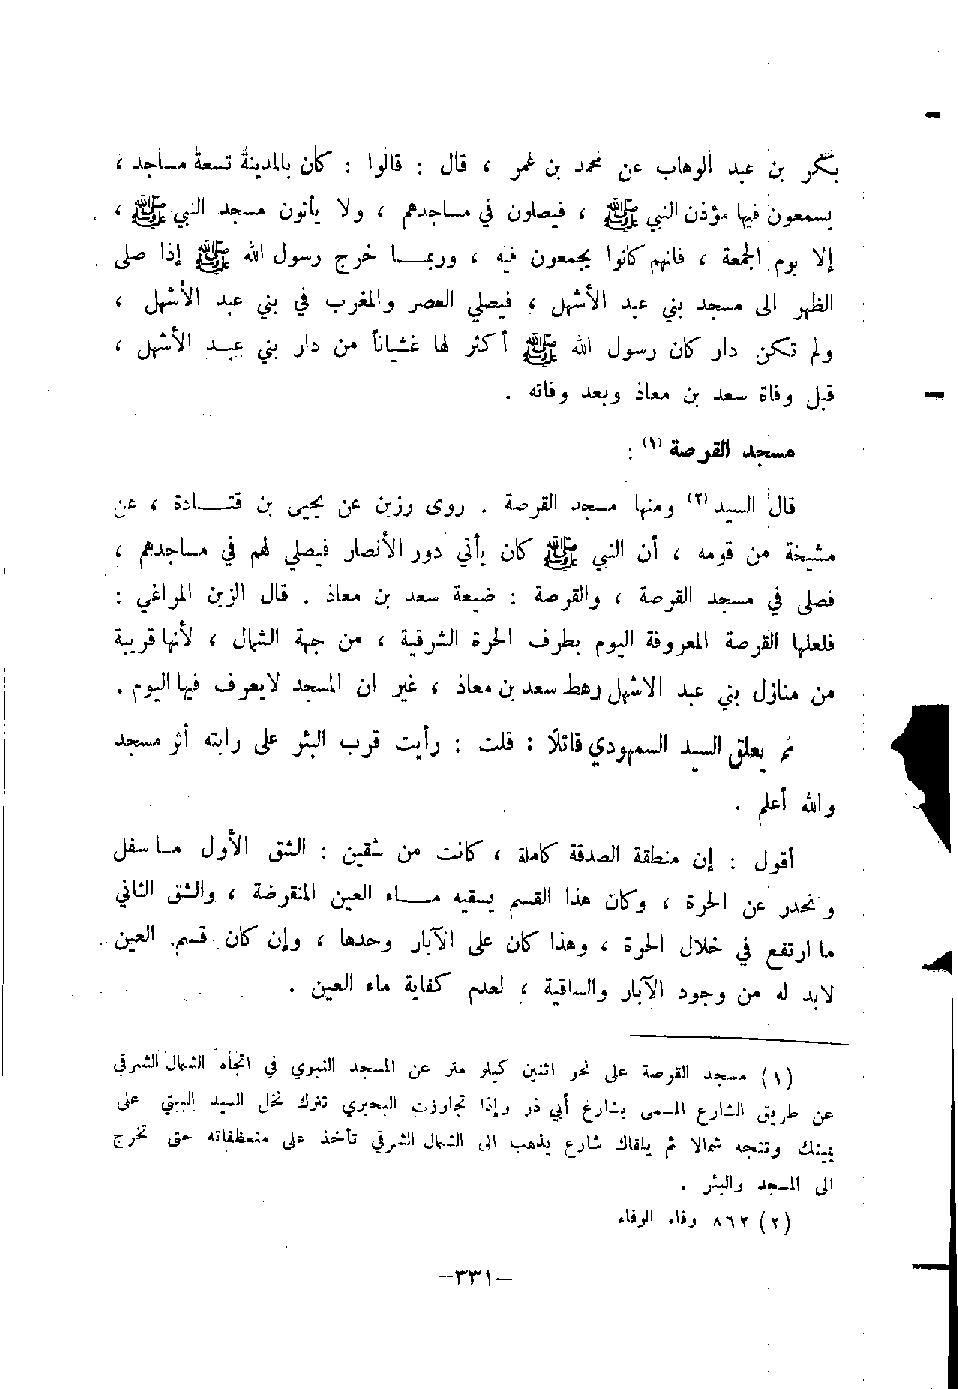 بكر بن عبد الوهاب عن محمد بن عمر ، قال : قالوا : كان بالمدينة تسعة مساجد ،
يسمعون فيها مؤذن النبي ﷺ ، فيصلون في مساجدهم ، ولا يأتون مسجد النبي ﷺ ،
إلا يوم الجمعة ، فانهم كانوا يجمعون فيه ، وربما خرج رسول الله ﷺ إذا صلى
الظهر الى مسجد بني عبد الأشهل ، فيصلي العصر والمغرب في بني عبد الأشهل ،
ولم تكن دار كان رسول الله ﷺ أكثر لها غشياناً من دار بني عبد الأشهل ،
قبل وفاة سعد بن معاذ وبعد وفاته .
مسجد القرصة (١) :
قال السيد (٢) ومنها مسجد القرصة . روى رزين عن يحيى بن قتادة ، عن
مشيخة من قومه ، أن النبي ﷺ كان يأتي دور الأنصار فيصلي لهم في مساجدهم ،
فصلى في مسجد القرصة ، والقرصة : ضيعة سعد بن معاذ . قال الزين المراغي :
فلعلها القرصة المعروفة اليوم بطرف الحرة الشرقية ، من جهة الشمال ، لأنها قريبة
من منازل بني عبد الاشهل رهط سعد بن معاذ ، غير ان المسجد لايعرف فيها اليوم .
ثم يعلق السيد السمهودي قائلاً : قلت : رأيت قرب البئر على رابته أثر مسجد
والله أعلم .
أقول : إن منطقة الصدقة كاملة ، كانت من شقين : الشق الأول ما سفل
وانحدر عن الحرة ، وكان هذا القسم يسقيه ماء العين المنقرضة ، والشق الثاني
ما ارتفع في خلال الحرة ، وهذا كان على الآبار وحدها ، وإن كان قسم العين
لابد له من وجود الآبار والساقية ، لعدم كفاية ماء العين .
(١) مسجد القرصة على نحو اثنين كيلو متر عن المسجد النبوي في اتجاه الشمال الشرقي
عن طريق الشارع المسمى بشارع أبي ذر وإذا تجاوزت البحيري تترك نخل السيد البيتي على
يمينك وتتجه شمالا ثم يلقاك شارع يذهب الى الشمال الشرقي تأخذ على منعطفاته حتى تخرج
الى المسجد والبئر .
(٢) ٨٦٣ وفاء الوفاء
-٣٣١-